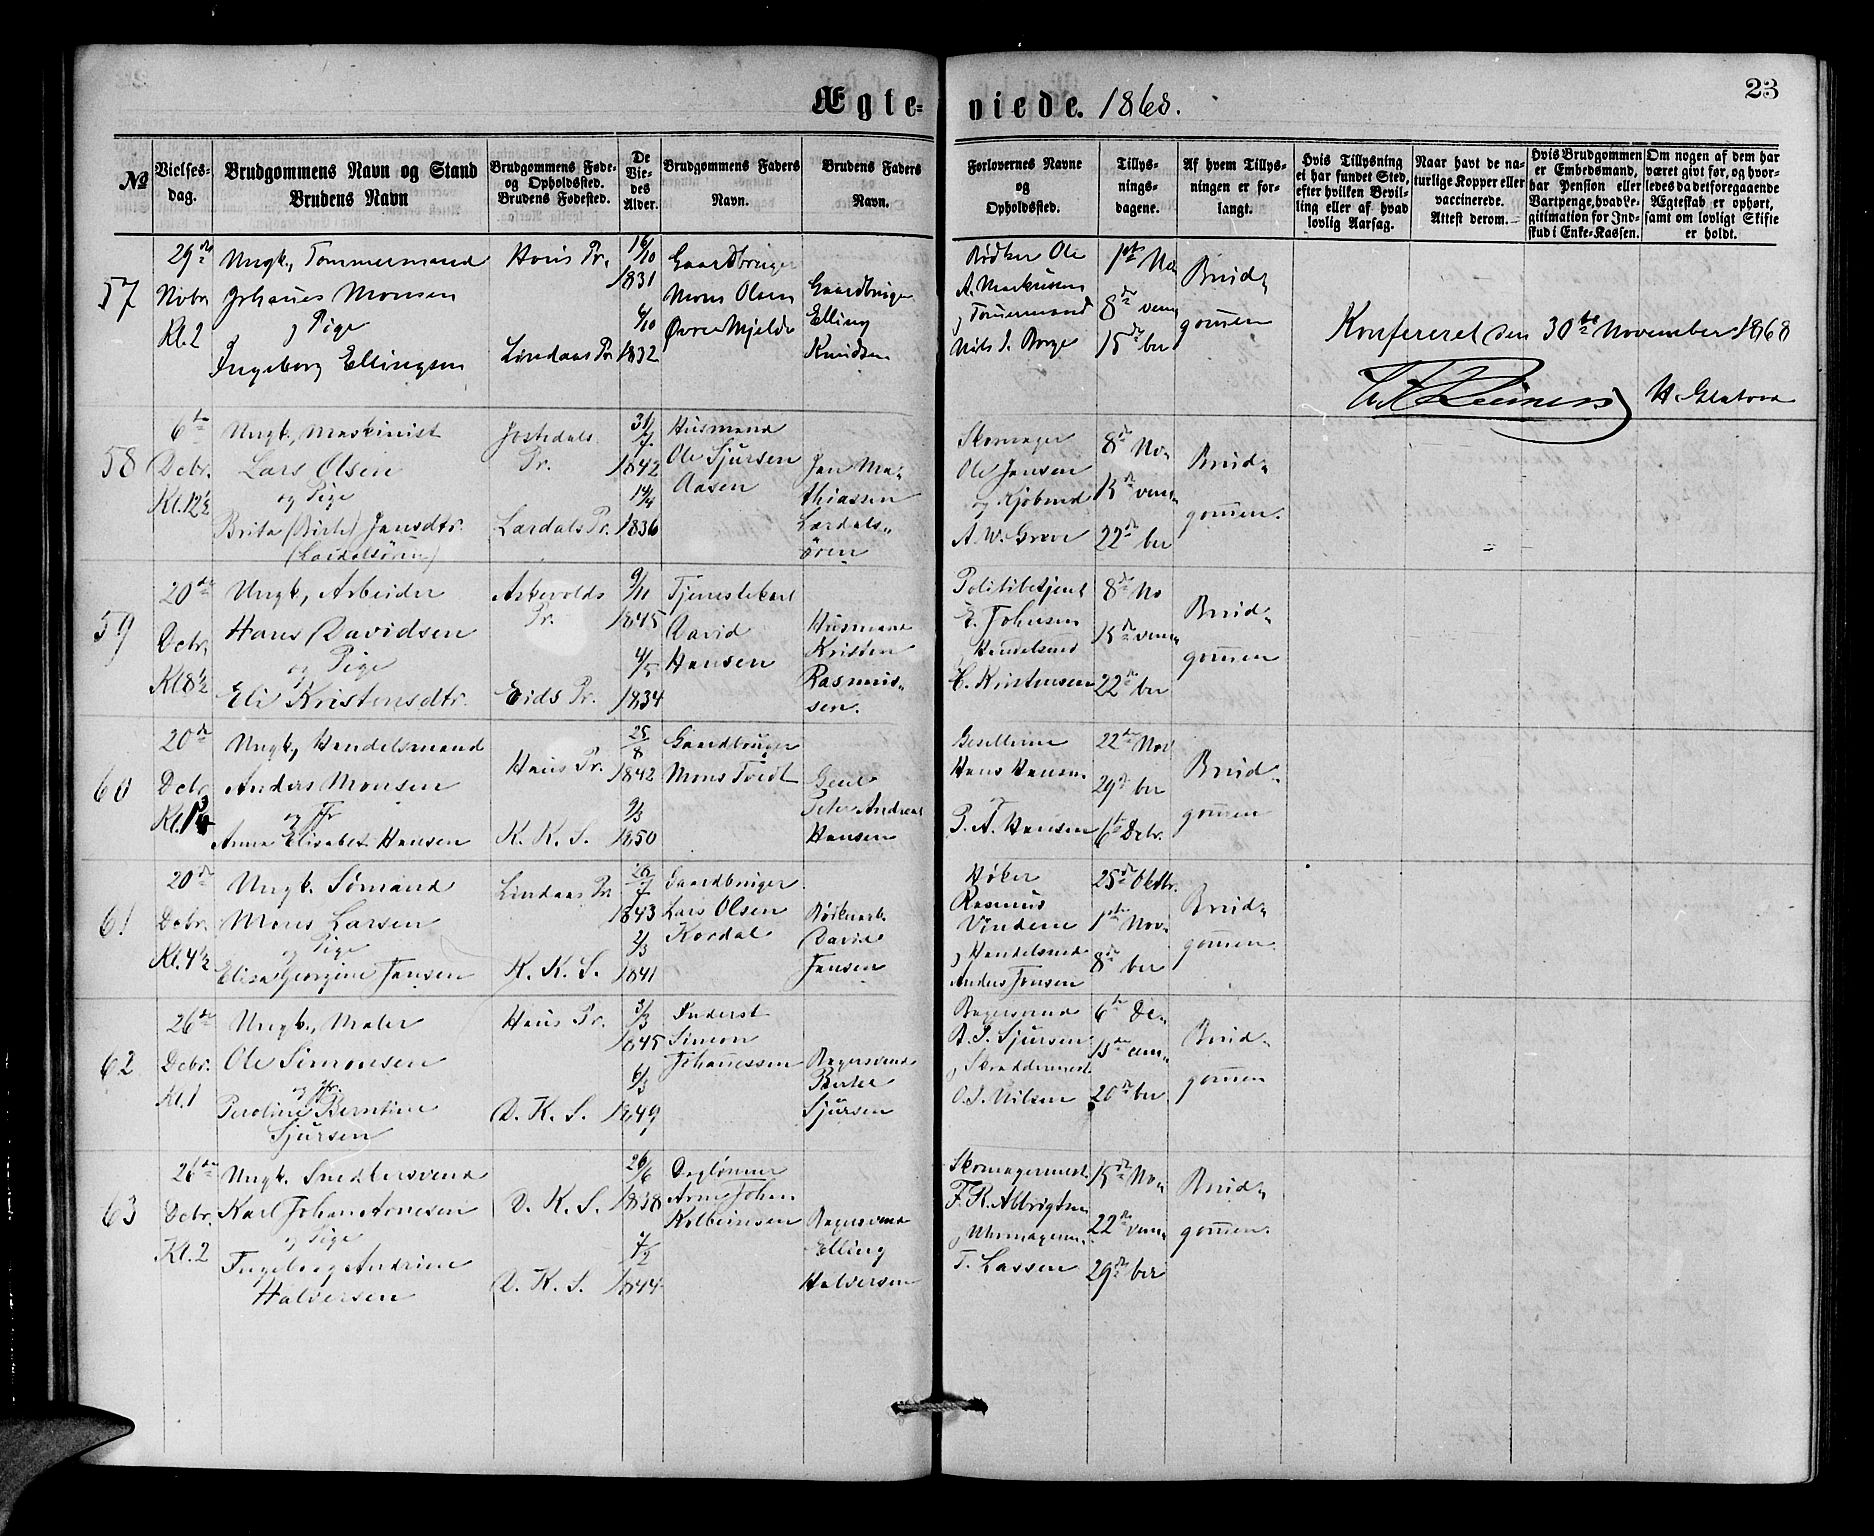 Ægteviede. 1868.
23
No
Vielsesdag.
Brudgommens Navn og Stand
Brudens Navn
Brudgommens Føde-
og Opholdssted.
Brudens Fødested.
De
Vie-
des
Alder.
Brudgommens Faders
Navn.
Brudens Faders
Navn.
Forlovernes Navne
og
Opholdssted.
Tillys-
nings-
dagene.
Af hvem Tillys-
ningen er for-
langt.
Hvis Tillysning
ei har fundet Sted,
efter hvilken Bevil-
ling eller af hvad
lovlig Aarsag.
Naar havt de na-
turlige Kopper eller
vaccinerede.
Attest derom.
Hvis Brudgommen
er Embedsmand,
har Pension eller
Vartpenge, hvad Le-
gitimation for Ind-
skud i Enke-Kassen.
Om nogen af dem har
været givt før, og hvor-
ledes da det foregaaende
Ægteskab er ophørt,
samt om lovligt Skifte
er holdt.
57
29de
Novbr
Kl. 2
Ungk., Tømmermand
Johanes Monsen
og Pige
Ingeborg Ellingsen
Haus Pr.
Lindaas Pr.
16/10
1831
6/10
1832
Gaardbruger
Mons Olsen
Øvre Mjelde
Gaardbruger
Elling
Knudsen
Bødker Ole
A. Markussen
og Tømmermand
Nils J. Borge
1ste No
8de vem
15de ber
Brud-
gommen
Konfereret den 30te November 1868
58
6te
Decbr.
Kl. 12½
Ungk., Maskinist
Lars Olsen
og Pige
Brita (Birte) Jansdtr.
(Lærdalsøren)
Jostedals
Pr.
Lærdals Pr.
31/7
1842
14/4
1836
Husmand
Ole Sjursen
Aasen
Jan Ma-
thiassen
Lærdals-
øren
Skomager
Ole Jansen
og Kjøbmd
A. W. Greve
8de No-
15de vem-
22de ber
Brud-
gommen.
59
20de
Decbr.
Kl. 8½
Ungk., Arbeider
Hans Davidsen
og Pige
Eli Kristensdtr.
Askevolds
Pr.
Eids Pr.
9/11
1845
4/5
1834
Tjenestekarl
David
Hansen
Husmand
Kristen
Rasmus-
sen.
Politibetjent
E. Johnsen
og Handelsmd
C. Kristensen
8de No
15de vem
22de ber
Brud-
gommen
60
20de
Decbr
Kl. 1¾
Ungk., Handelsmand
Anders Monsen
og Jfr
Anna Elisabet Hansen
Haus Pr.
K. K. S.
25/8
1842
9/3
1850
Gaardbruger
Mons Tvedt
Peter Andreas
Hansen
Gesellerne
Hans Hansen
P. A. Hansen
22de Nov
29de ber
6te Debr.
Brud-
gommen
61
20de
Decbr.
Kl. 4½
Ungk. Sømand
Mons Larsen
og Pige
Elisa Georgine Jansen
Lindaas Pr
K. K. S.
1843
2/3
1841
Gaardbruger
Lars Olsen
Kordal
David
Jansen
Høker
Rasmus
Vindene
og Handelsmd
Anders Jensen
25de Oktbr.
1ste Nov-
8de ber
Brud-
gommen.
62
26de
Decbr.
Kl. 1
Ungk., Maler
Ole Simonsen
og Jfr.
Peroline Berntine
Sjursen
Haus Pr.
D. K. S.
3/3
1845
6/3
1849
Inderst
Simon
Johanessen
Bagersvend
Sjursen
Bagersvend
B. S. Sjursen
og Skræddermest
O. S. Nilsen
6te De-
13de cem-
20de ber
Brud-
gommen
63
26de
Decbr.
Kl. 2
Ungk. Snedkersvend
Karl Johan Arnesen
og Pige
Ingeborg Andrine
Halversen
D. K. S.
D. K. S.
26/6
1838
1844
Daglønner
Arne Johan
Kolbeinsen
Bagersvend
Elling
Halversen
Skomagermest.
F. R. Albrigtsen
og Uhrmagerm.
T. Lassen
15de No-
22de vem-
29de ber
Brud-
gommen.